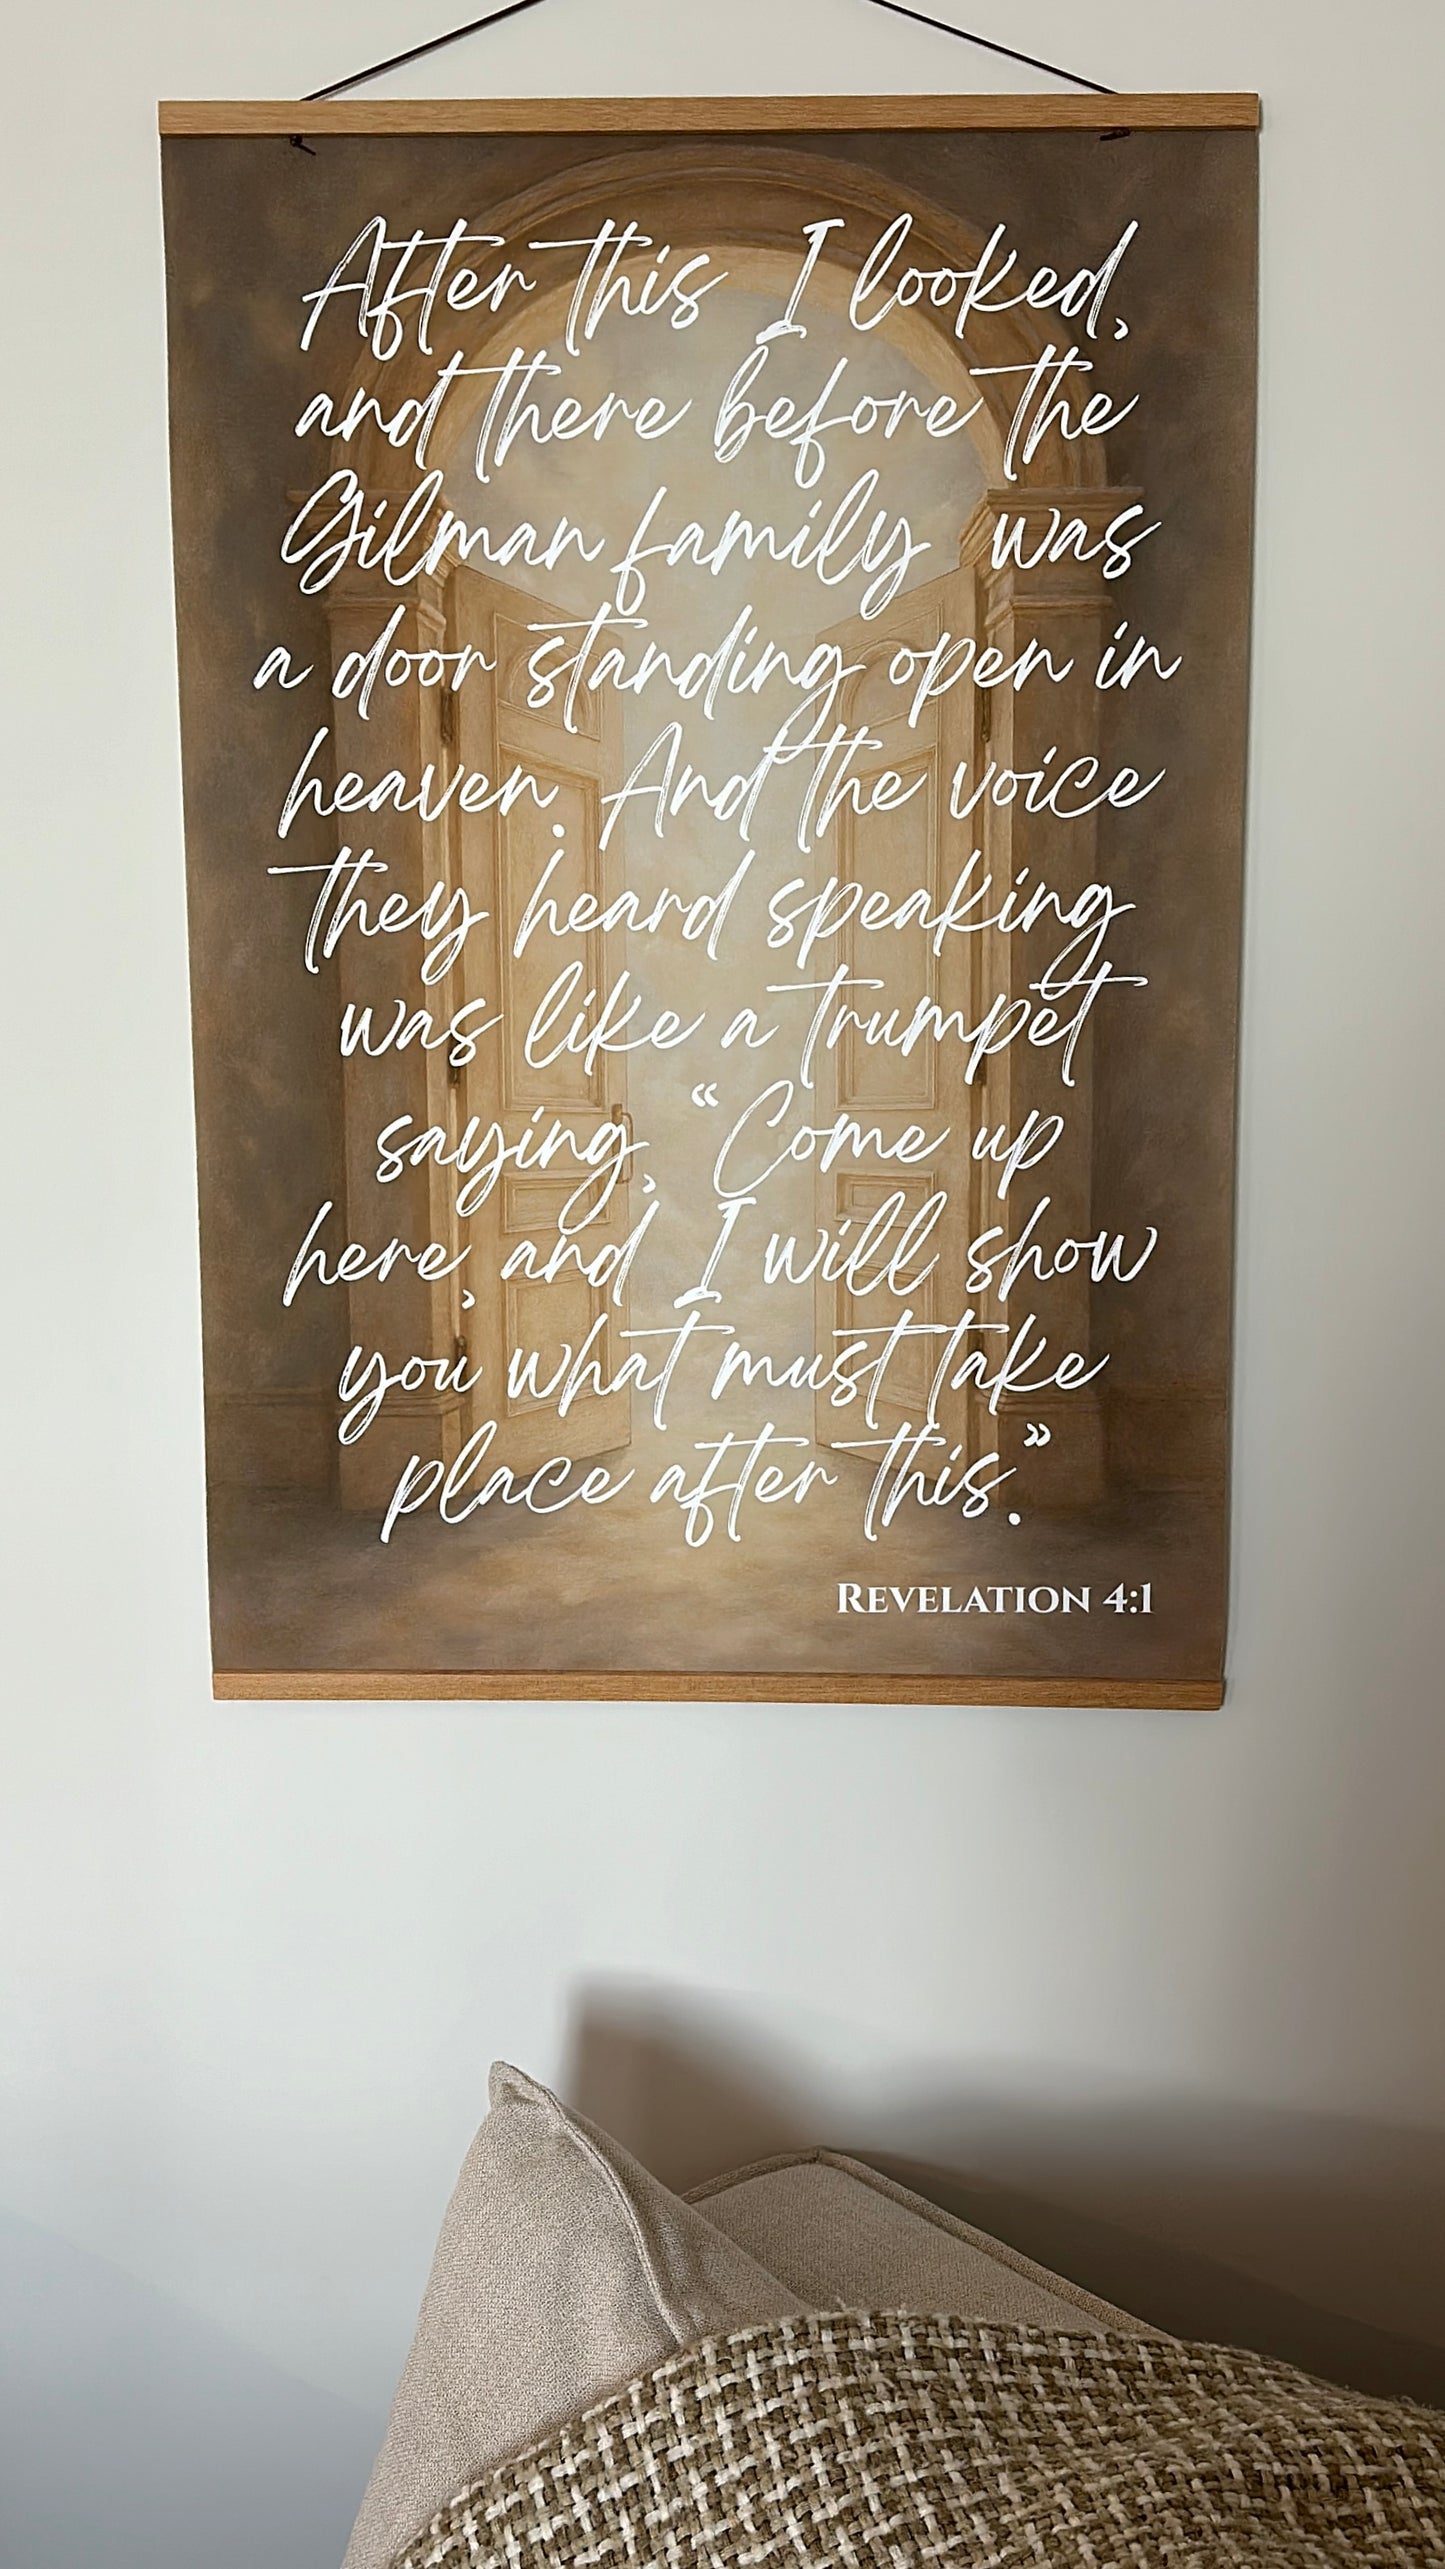 After this I looked,
and there before the
Gilman family was
a door standing open in
heaven. And the voice
they heard speaking
was like a trumpet
saying, “Come up
here, and I will show
you what must take
place after this.”
REVELATION 4:1